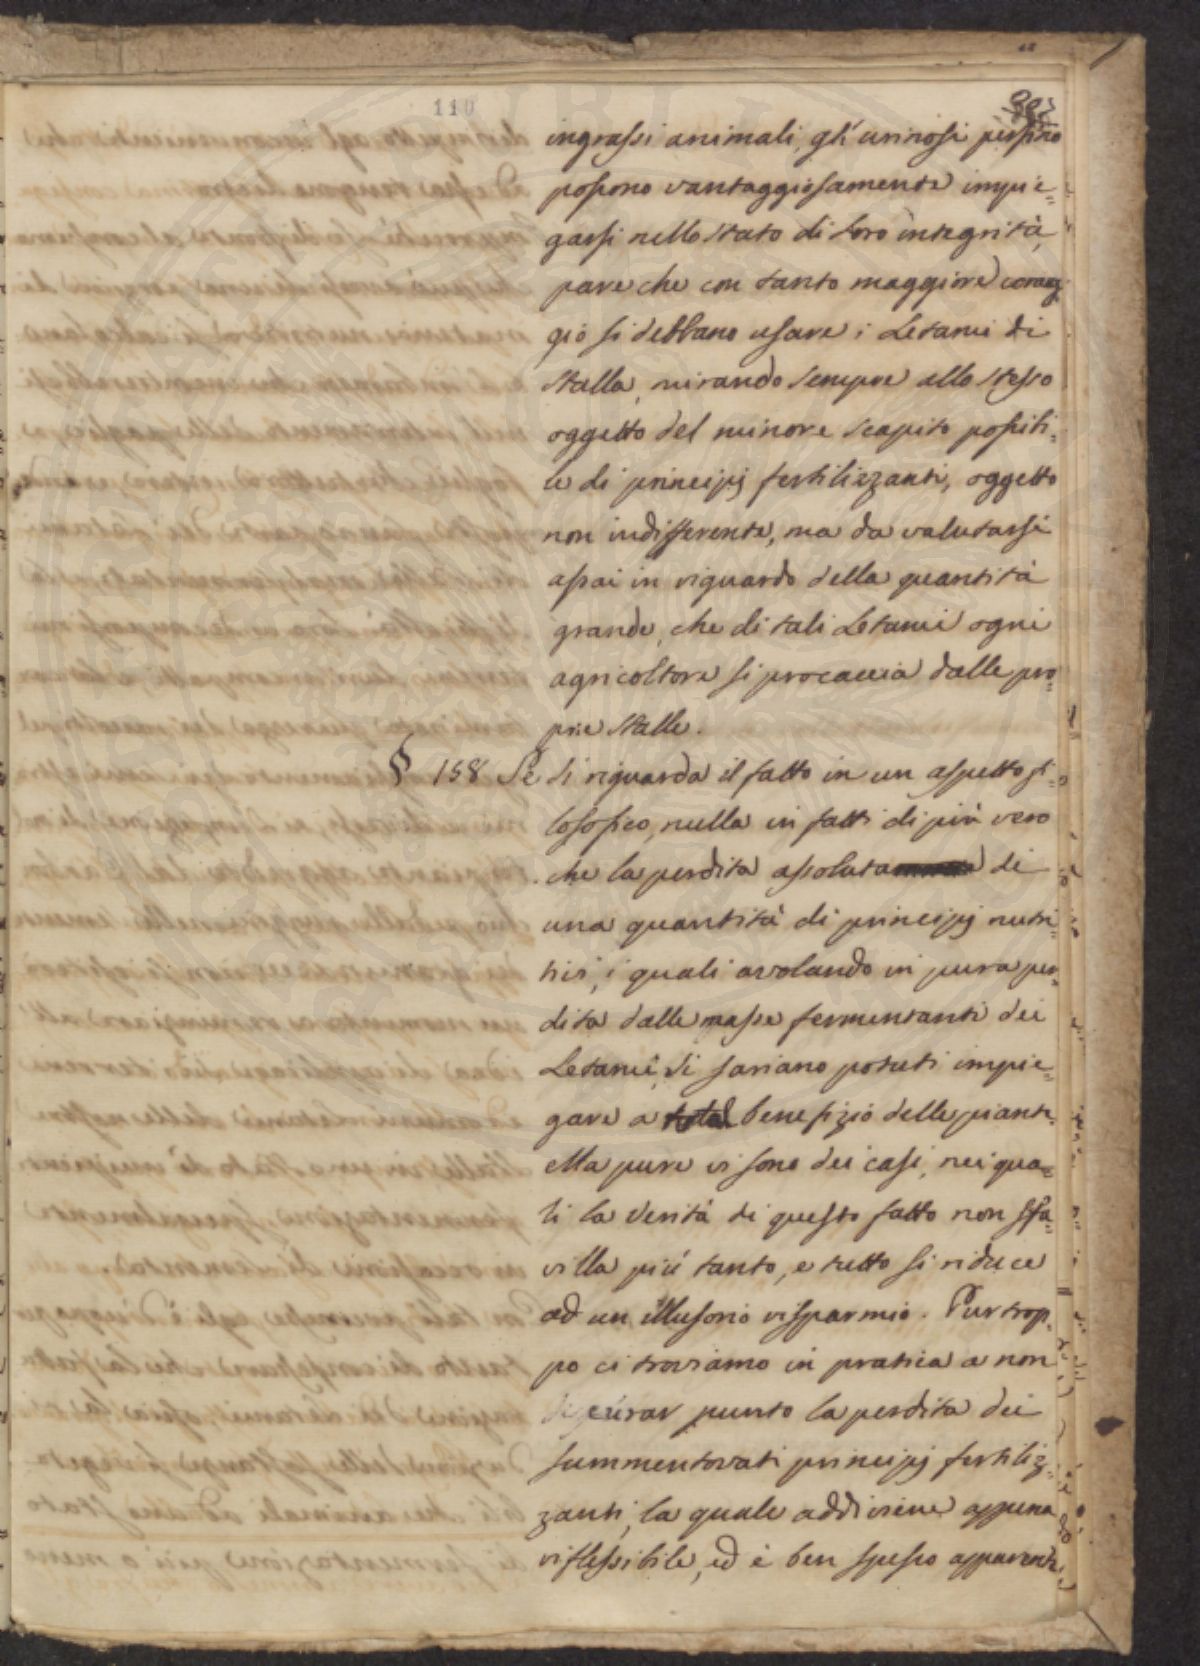 110
ingrassi animali, gli urinosi persino
possono vantaggiosamente impie=
garsi nello stato di loro integrità,
pare che con tanto maggiore corag
gio si debbano usare i Letami di
stalla, mirando sempre allo stesso
oggetto del minore scapito possibi=
le di principj fertilizzanti, oggetto
non indifferente, ma da valutarsi
assai in riguardo della quantità
grande, che di tali Letami ogni
agricoltore si procaccia dalle pro=
prie stalle.
§ 158 Se si riguarda il fatto in un aspetto fi=
losofico, nulla in fatti di più vero
che la perdita assoluta di
una quantità di principj nutri=
tivi, i quali avolando in pura per=
dita dalle masse fermentanti dei
Letami, si sariano potuti impie=
gare a benefizio delle piante.
Ma pure vi sono dei casi, nei qua=
li la verità di questo fatto non sfa=
villa più tanto, e tutto si riduce
ad un illusorio risparmio. Purtrop=
po ci troviamo in pratica a non
curar punto la perdita dei
summentovati principj fertiliz=
zanti, la quale addiviene appena
riflessibile, ed è ben spesso apparente,